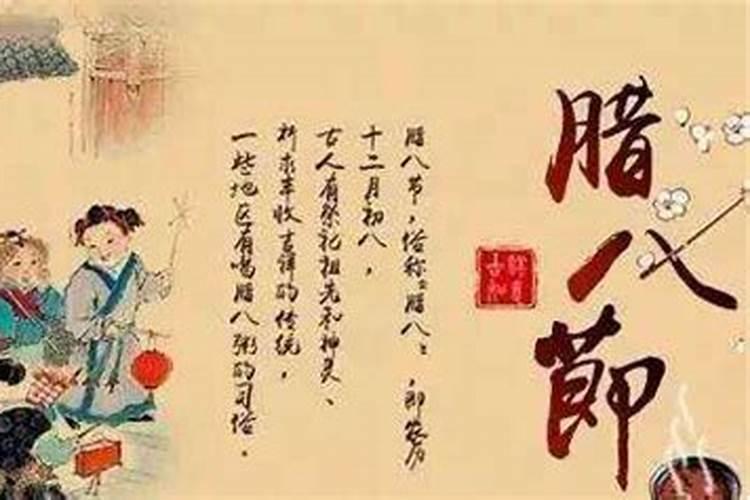 腊八节
腊八节，俗称“腊八”，即农历
十二月初八，
古人有祭祀祖先和神灵、
祈求丰收吉祥的传统，
一些地区有喝腊八粥的习俗。